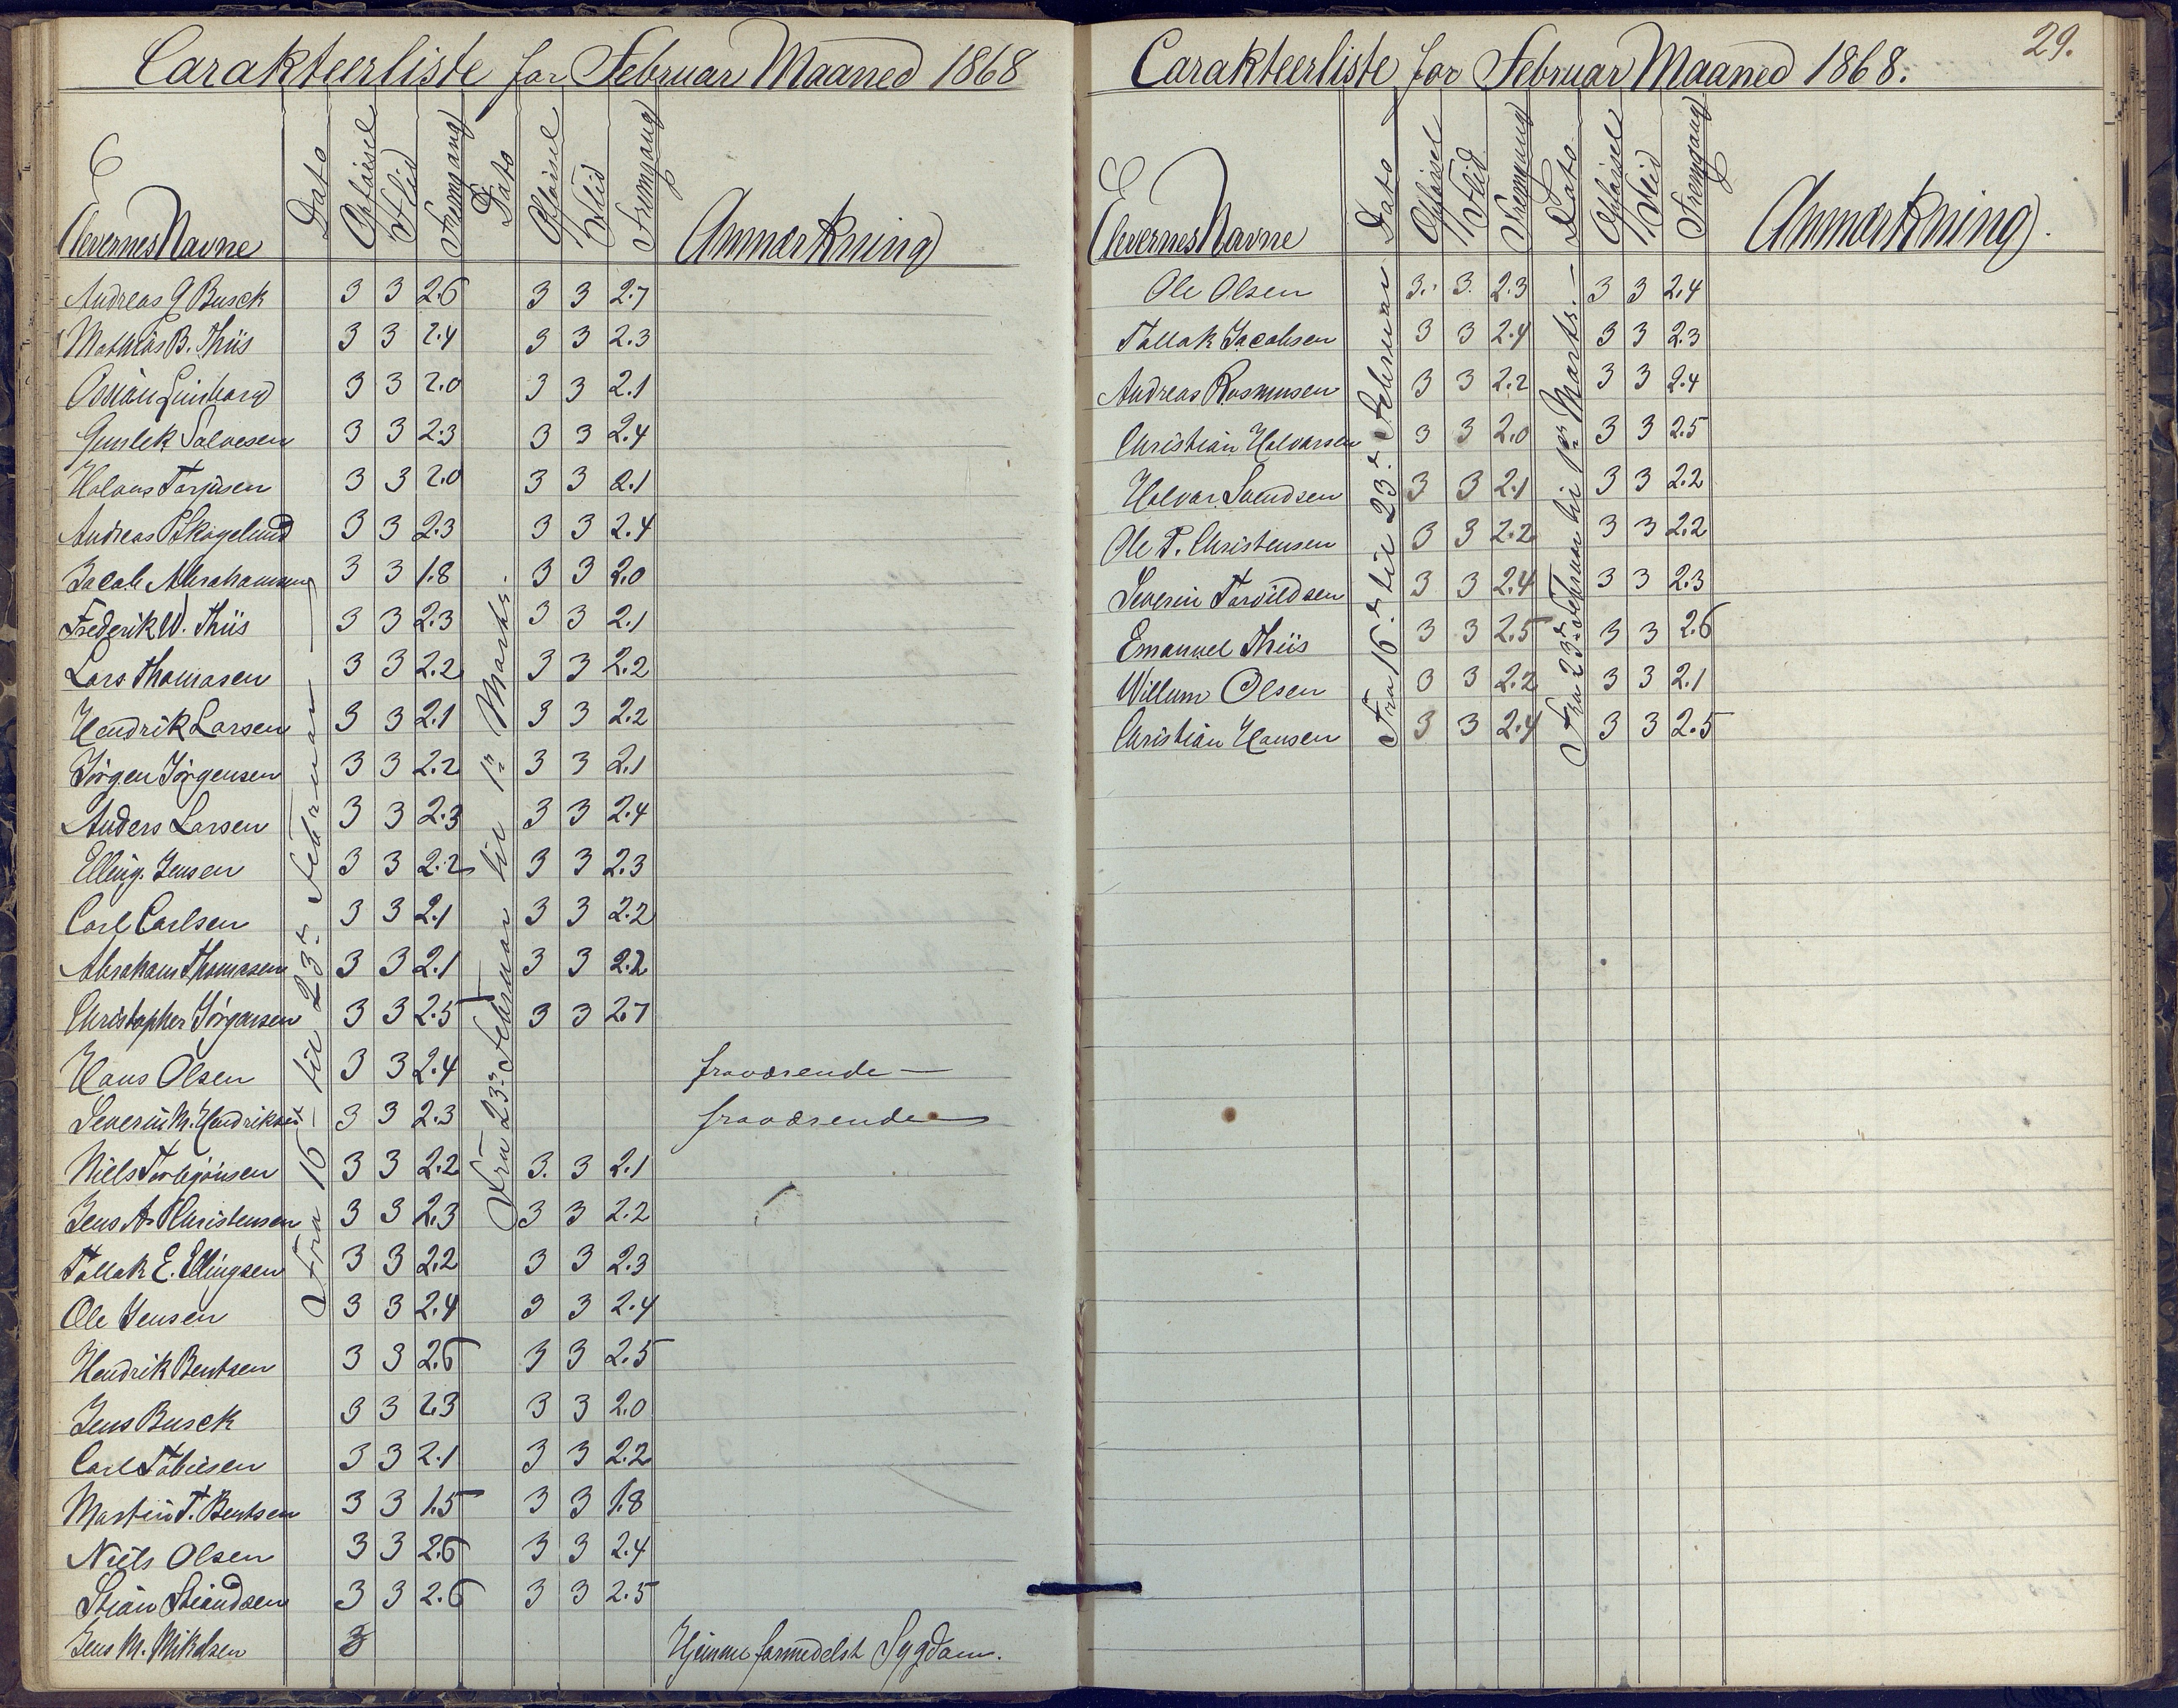 Carakteerliste for Februar Maaned 1868
Elevernes Navne Dato Opførsel Flid Fremgang Dato Opførsel Flid Fremgang Anmærkning
Fra 16de til 23de Februar
Fra 23de Februar til 1ste Marts.
Andreas G Busck 3 3 2.6 3 3 2.7
Mathias B. Thiis 3 3 2.4 3 3 2.3
3 3 2.0 3 3 2.1
Gunlek Salvesen 3 3 2.3 3 3 2.4
Halvus Torjusen 3 3 2.0 3 3 2.1
Andreas Skogelund 3 3 2.3 3 3 2.4
Jacob Abrahamsen 3 3 1.8 3 3 2.0
Frederik W. Thiis 3 3 2.3 3 3 2.1
Lars Thomasen 3 3 2.2 3 3 2.2
Hendrik Larsen 3 3 2.1 3 3 2.2
Jörgen Jörgensen 3 3 2.2 3 3 2.1
Anders Larsen 3 3 2.3 3 3 2.4
Elling Jensen 3 3 2.2 3 3 2.3
Carl Carlsen 3 3 2.1 3 3 2.2
Abraham Thomasen 3 3 2.1 3 3 2.2
Christopher Jörgensen 3 3 2.5 3 3 2.7
Hans Olsen 3 3 2.4 fraværende —
Severin M. Hendriksen 3 3 2.3 fraværende
Niels Torbjönsen 3 3 2.2 3. 3 2.1
Jens A. Christensen 3 3 2.3 3 3 2.2
Tallak E. Ellingsen 3 3 2.2 3 3 2.3
Ole Jensen 3 3 2.4 3 3 2.4
Hendrik Bentsen 3 3 2.6 3 3 2.5
Jens Busck 3 3 2.3 3 3 2.0
Carl Tobiesen 3 3 2.1 3 3 2.2
Martin T. Bentsen 3 3 1.5 3 3 1.8
Niels Olsen 3 3 2.6 3 3 2.4
Stian Stiandsen 3 3 2.6 3 3 2.5
Jens M. Mikelsen 3 Hjemme formedelst Sygdom.
29.
Carakteerliste for Februar Maaned 1868.
Elevernes Navne Dato Opførsel Flid Fremgang Dato Opførsel Flid Fremgang Anmærkning.
Fra 16de til 23de Februar
Fra 23de Februar til 1ste Marts. —
Ole Olsen 3. 3. 2.3 3 3 2.4
Tallak Jacobsen 3 3 2.4 3 3 2.3
Andreas Rasmusen 3 3 2.2 3 3 2.4
Christian Halvorsen 3 3 2.0 3 3 2.5
Halvor Svendsen 3 3 2.1 3 3 2.2
Ole P. Christensen 3 3 2.2 3 3 2.2
Severin Torvildsen 3 3 2.4 3 3 2.3
Emanuel Thiis 3 3 2.5 3 3 2.6
Willum Olsen 3 3 2.2 3 3 2.1
Christian Hansen 3 3 2.4 3 3 2.5